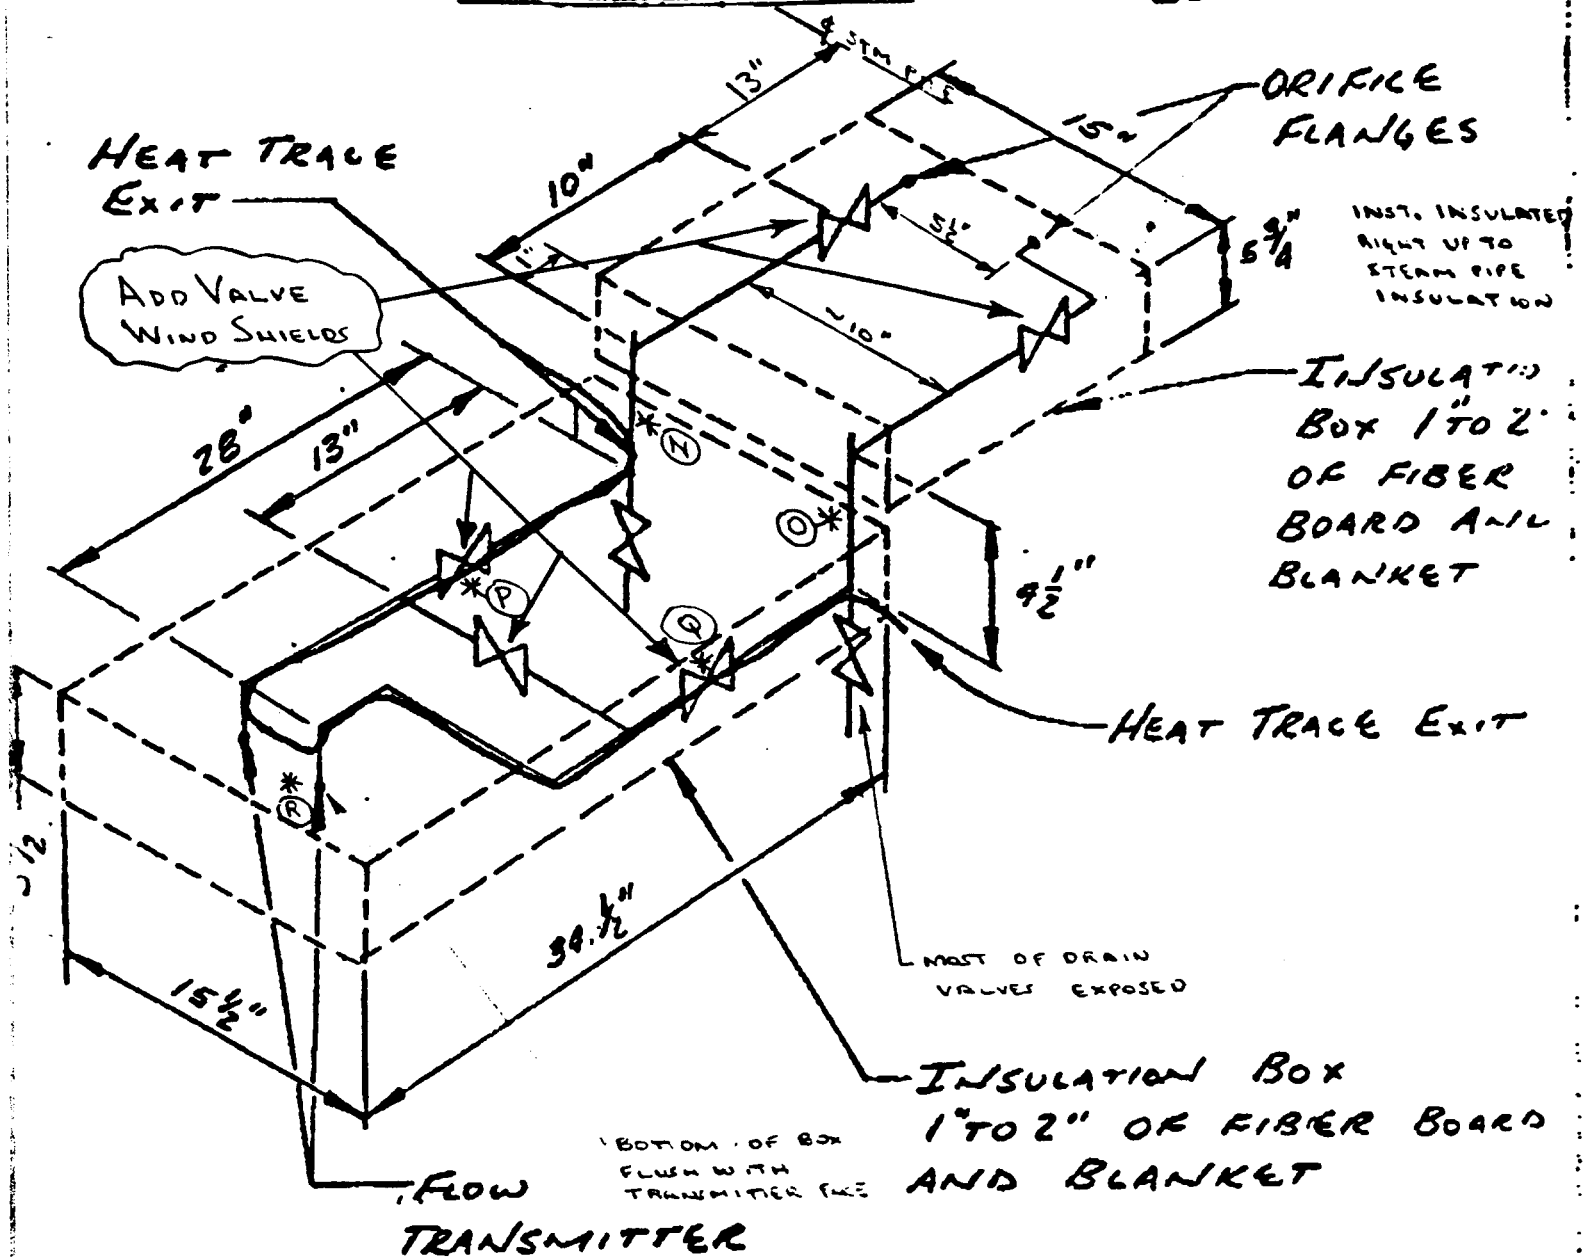 ℄ STM
13"
ORIFICE
FLANGES
15"
HEAT TRACE
EXIT
10"
1"
5½"
5¾"
INST. INSULATED
RIGHT UP TO
STEAM PIPE
INSULATION
ADD VALVE
WIND SHIELDS
~10"
INSULATIO
BOX 1" TO 2"
OF FIBER
BOARD AND
BLANKET
28"
13"
* N
O *
* P
Q
*
4½"
HEAT TRACE EXIT
*
R
1/2
34½"
15½"
MOST OF DRAIN
VALVES EXPOSED
INSULATION BOX
1" TO 2" OF FIBER BOARD
AND BLANKET
BOTTOM OF BOX
FLUSH WITH
TRANSMITTER FACE
FLOW
TRANSMITTER